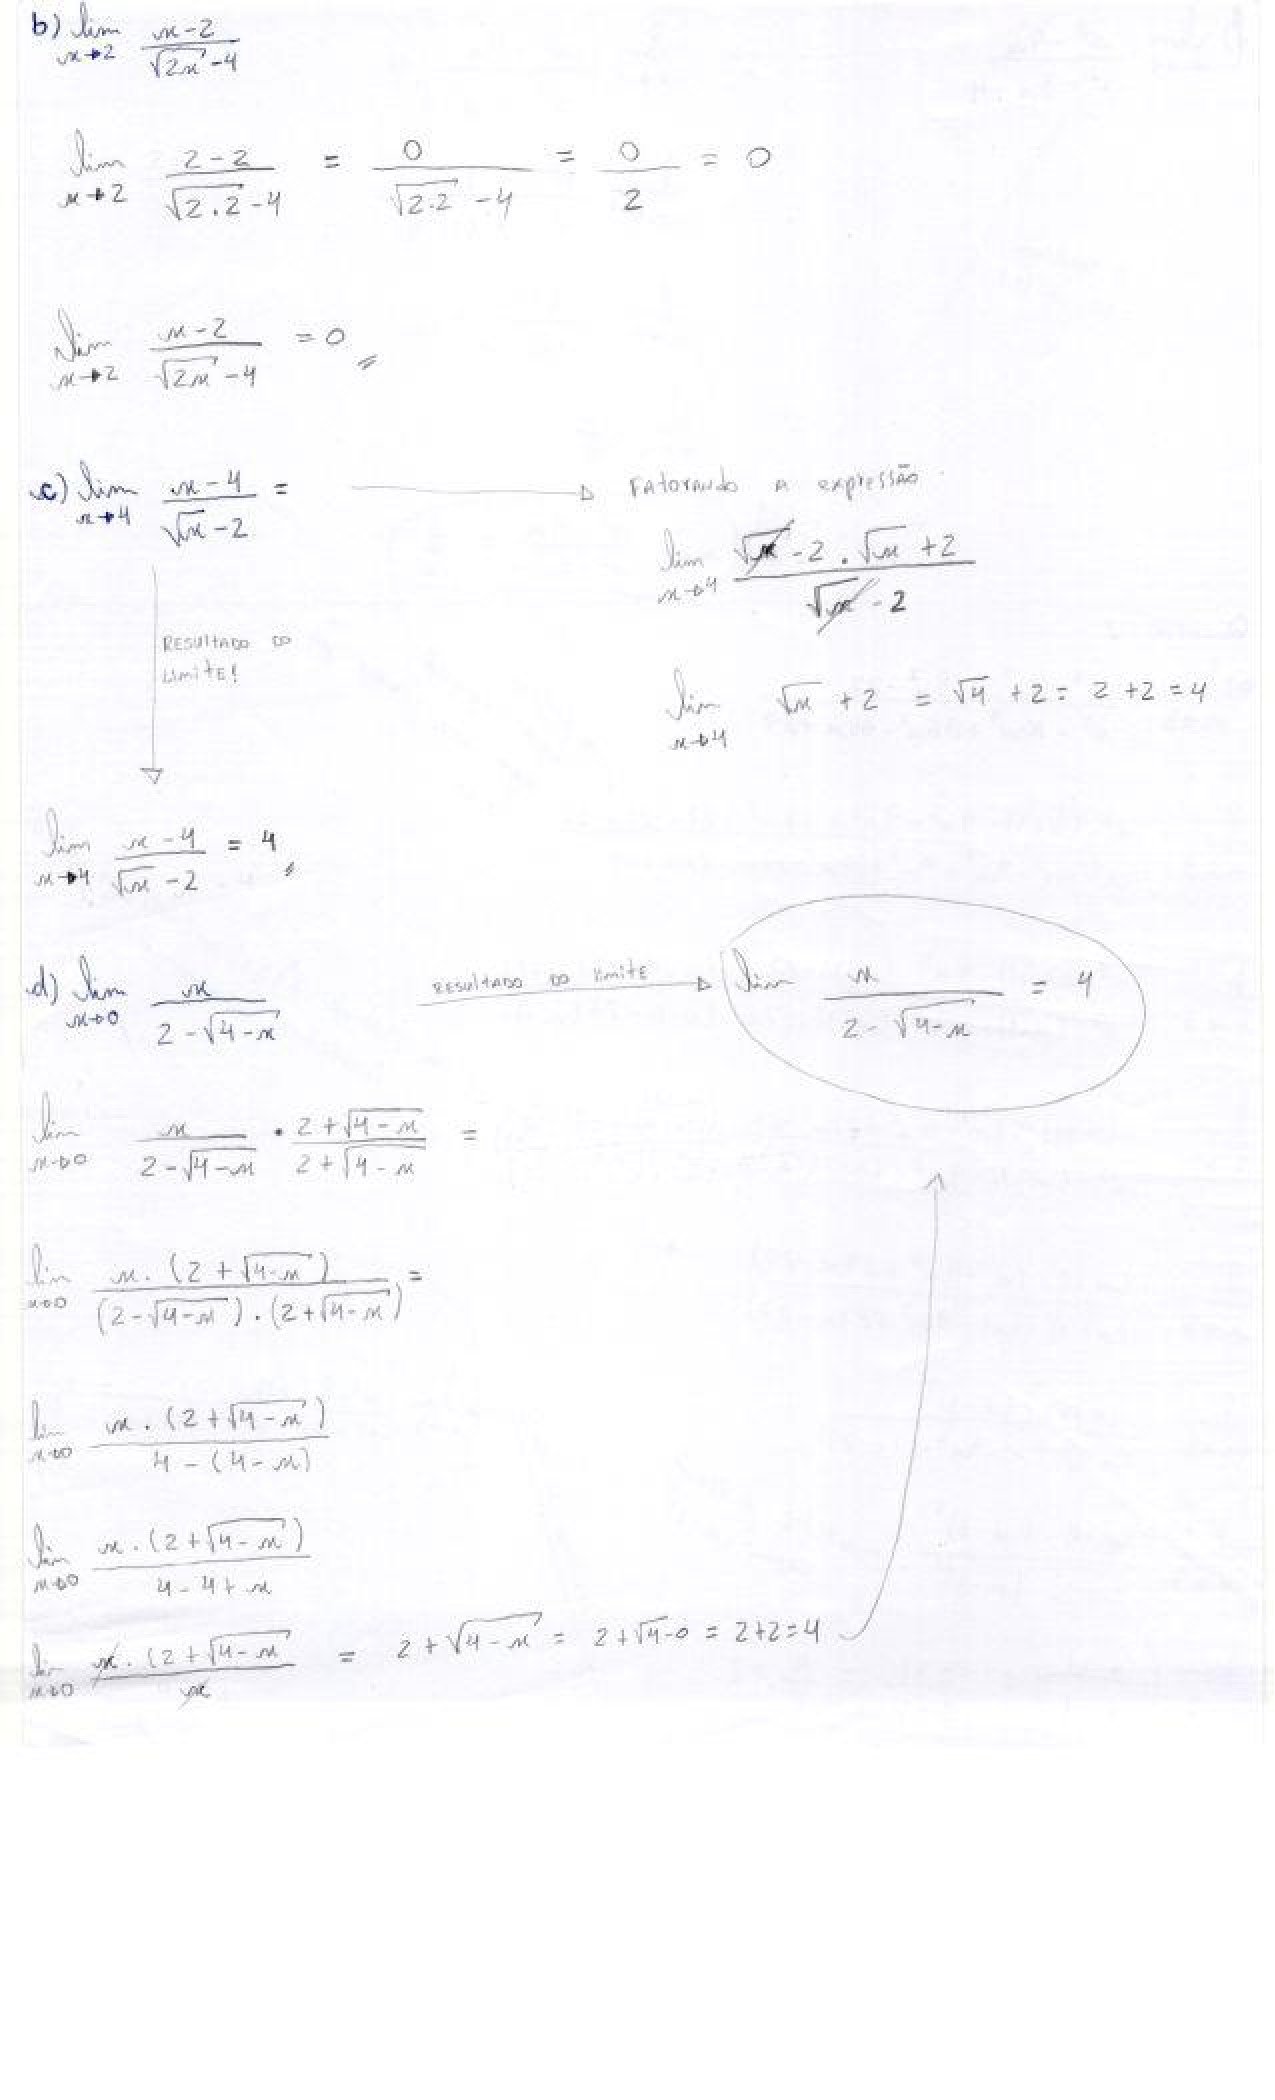 b) lim x→2 (x-2)/(√2x - 4)
lim x→2 (2-2)/(√2.2 - 4) = 0/(√2.2 - 4) = 0/2 = 0
lim x→2 (x-2)/(√2x - 4) = 0
c) lim x→4 (x-4)/(√x - 2) = → FATORANDO A EXPRESSÃO
lim x→4 (√x - 2 . √x + 2)/(√x - 2)
RESULTADO DO
LIMITE!
lim x→4 √x + 2 = √4 + 2 = 2 + 2 = 4
lim x→4 (x-4)/(√x - 2) = 4
d) lim x→0 x/(2 - √4-x) RESULTADO DO LIMITE → lim x/(2 - √4-x) = 4
lim x→0 x/(2 - √4-x) · (2 + √4-x)/(2 + √4-x) =
lim x→0 x . (2 + √4-x)/(2 - √4-x) . (2 + √4-x) =
lim x→0 x . (2 + √4-x)/4 - (4-x)
lim x→0 x . (2 + √4-x)/4 - 4 + x
lim x→0 x . (2 + √4-x/x = 2 + √4-x = 2 + √4-0 = 2+2=4